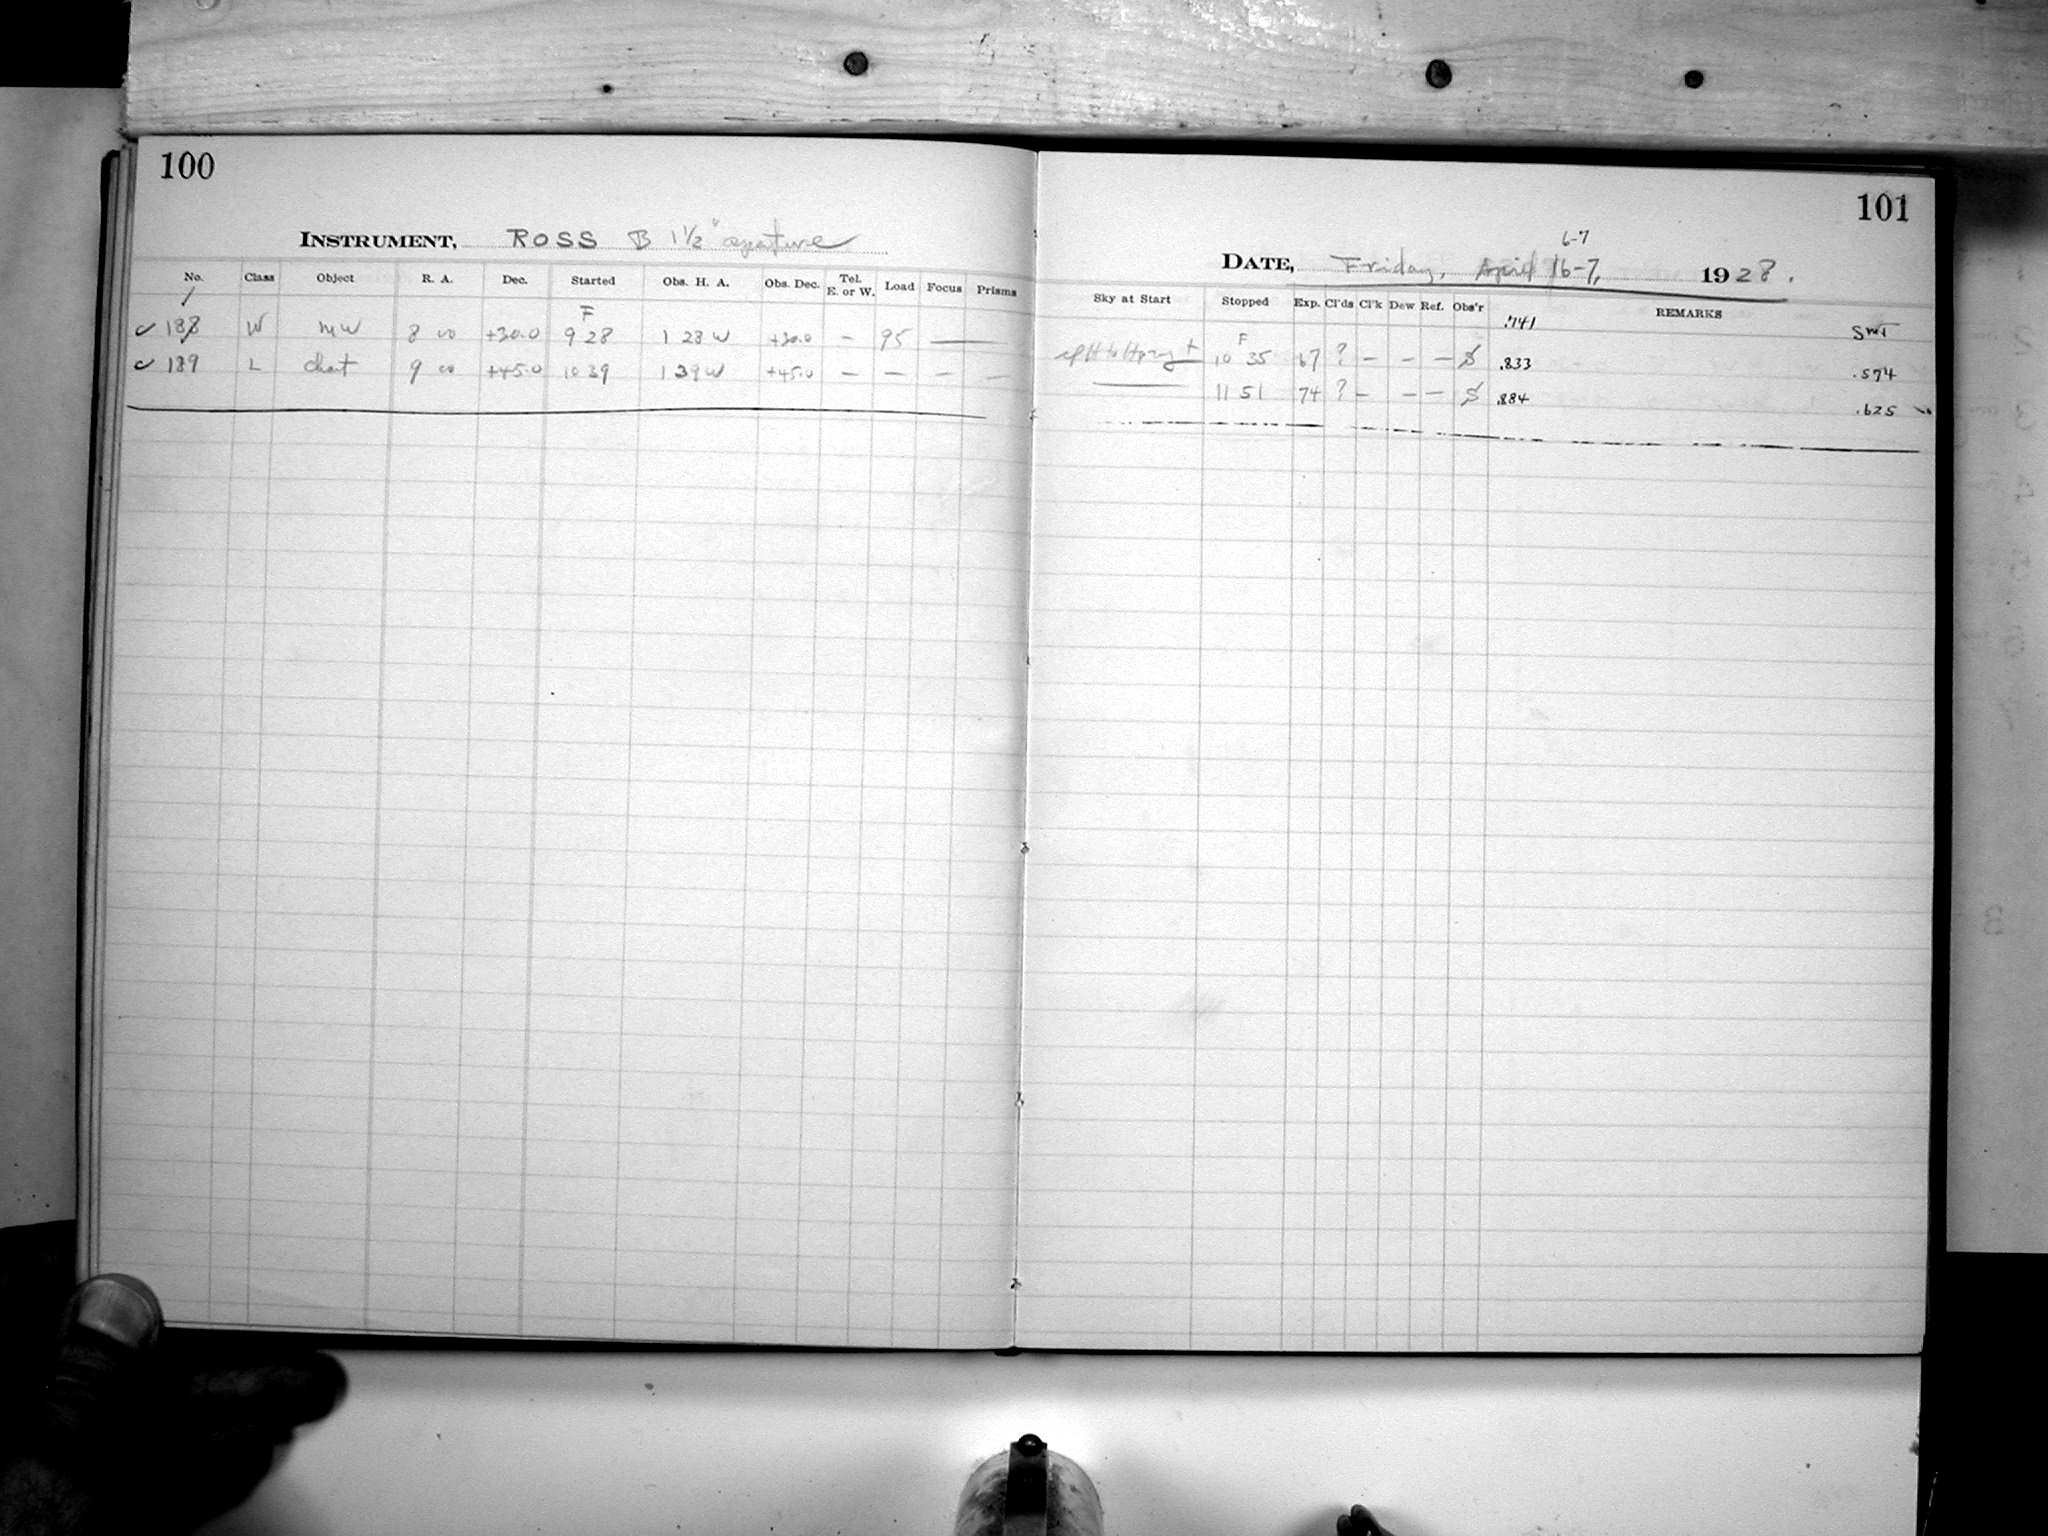 100
INSTRUMENT, ROSS B 1½" aperture
No. Class Object R. A. Dec. Started Obs. H. A. Obs. Dec. Tel. E. or W. Load Focus Prisms
F
188 W MW 8 00 +30.0 9 28 1 28 W +30.0 – 95
189 L Chart 9 00 +45.0 10 39 1 39 W +45.0 – – – –
101
6-7
DATE, Friday, April 16-7, 1928.
Sky at Start Stopped Exp. Cl'ds Cl'k Dew Ref. Obs'r REMARKS
.741 SMT
F
10 35 67 ? – – – S .833 .574
11 51 74 ? – – – S .884 .625